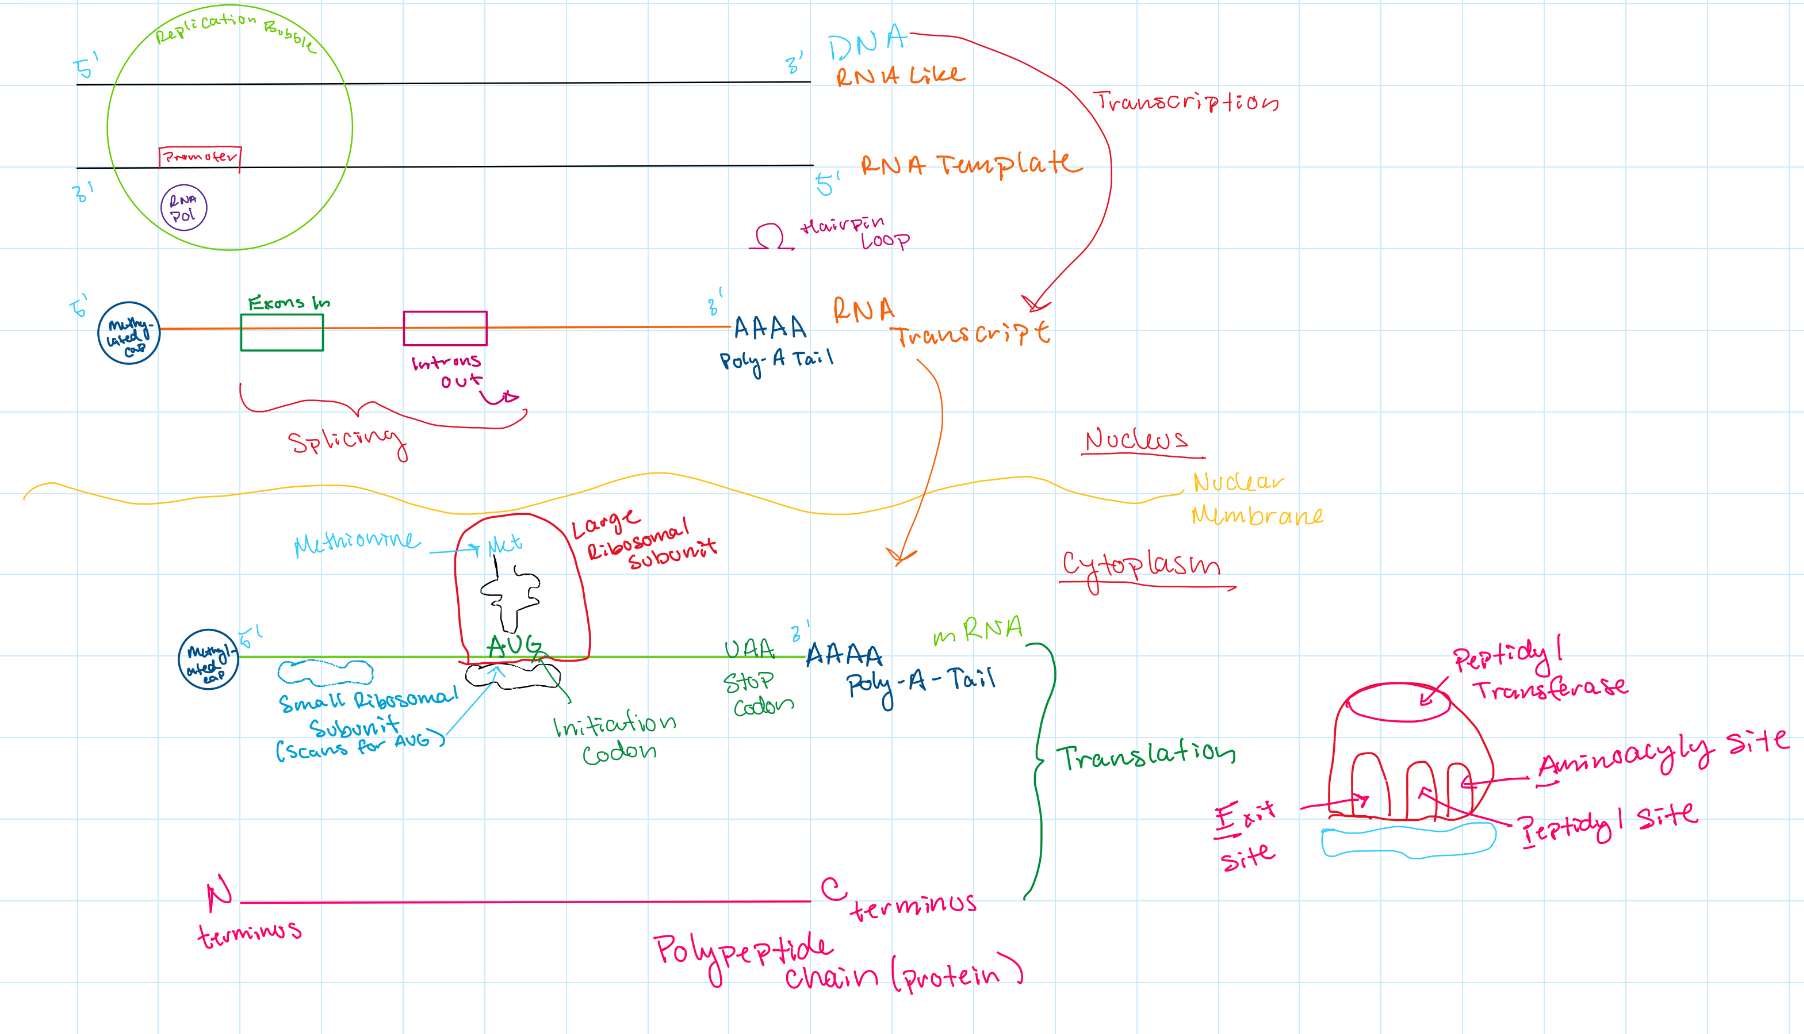 Replication Bubble
5'
3'
DNA
RNA Like
Transcription
Promoter
3'
5'
RNA Template
RNA
Pol
Hairpin
Loop
5'
Methy-
lated
cap
Exons In
Introns
out
3'
AAAA
Poly-A Tail
RNA
Transcript
Splicing
Nucleus
Nuclear
Membrane
Cytoplasm
Methionine
Met
Large
Ribosomal
Subunit
Methyl-
ated
cap
5'
AUG
UAA
Stop
Codon
3'
AAAA
Poly-A-Tail
mRNA
Small Ribosomal
Subunit
(scans for AUG)
Initiation
Codon
Translation
Peptidyl
Transferase
Aminoacyly site
Peptidyl site
Exit
site
N
terminus
C
terminus
Polypeptide
chain (protein)